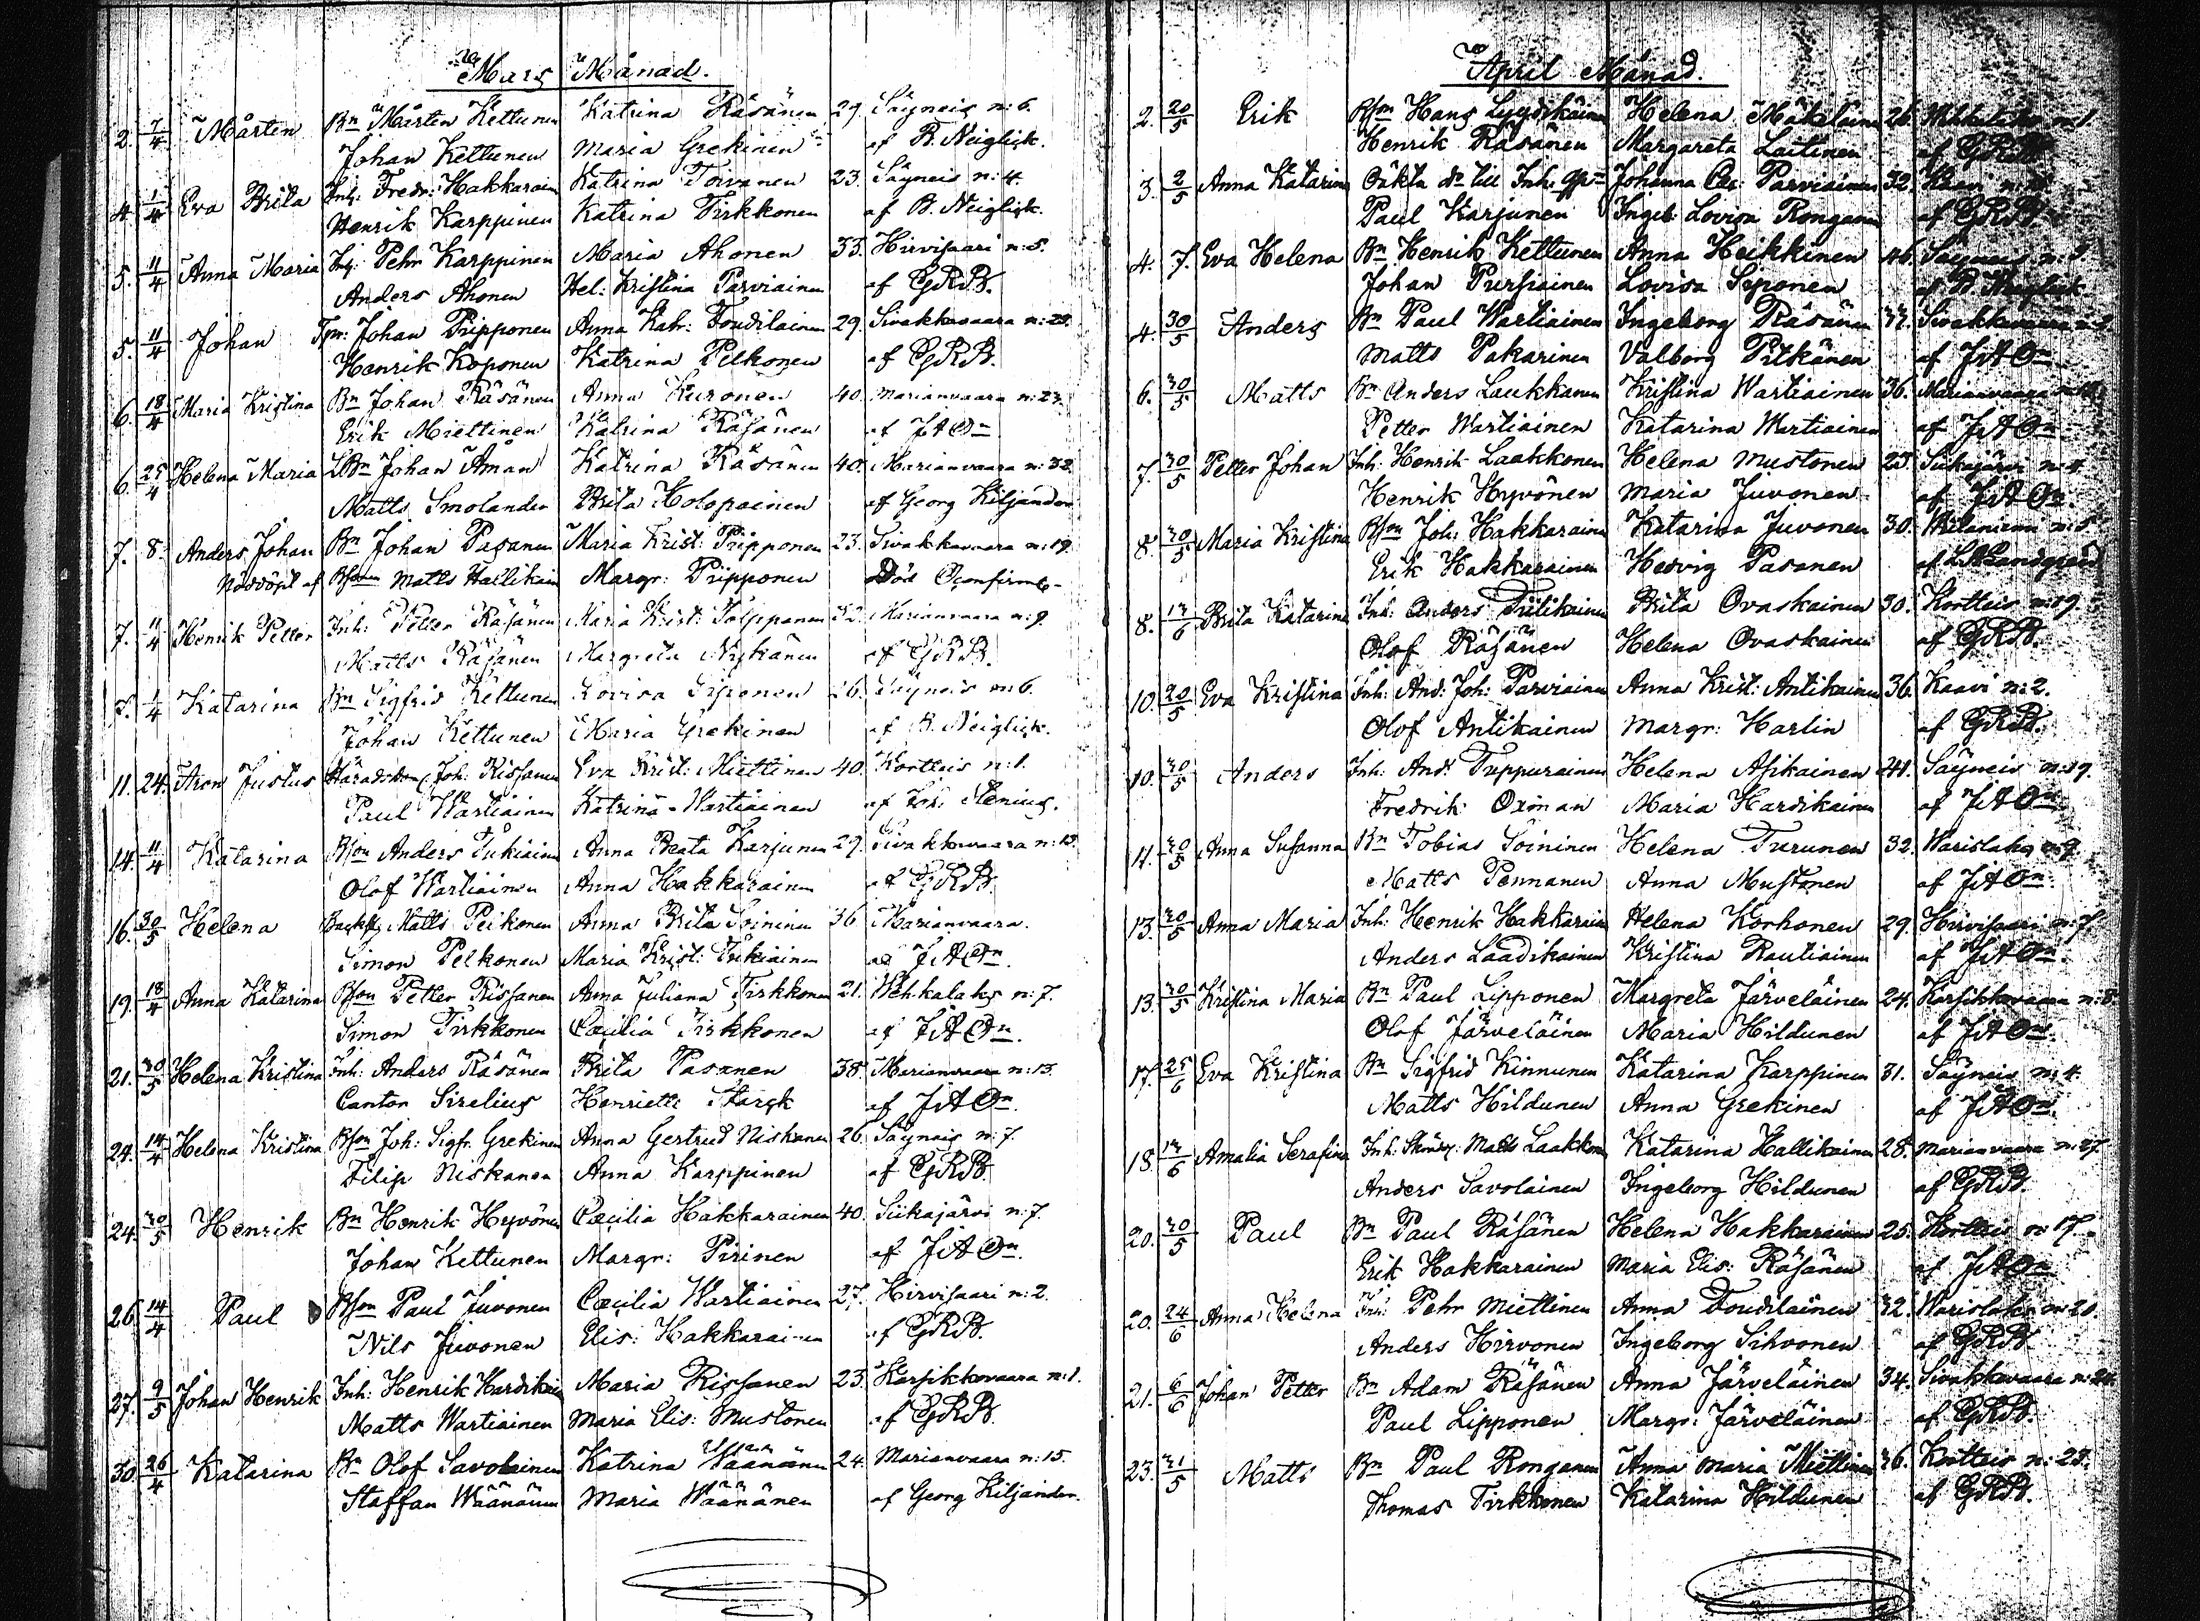 Mars Månad.
2. 7/4 Mårten Bn Mårten Kettunen Katrina Räsänen 29. Säyneis n:6.
Johan Kettunen Maria Grekinen af B. Neiglick.
4. 1/4 Eva Brita Inh: Fredr: Hakkarain Katrina Toivanen 23. Säyneis n:4.
Henrik Karppinen Katrina Tirkkonen af B. Neiglick.
5. 11/4 Anna Maria Inh: Pehr Karppinen Maria Ahonen 33. Hirvisaari n:5.
Anders Ahonen Hel: Kristina Parviainen af GRB.
5. 11/4 Johan Johan Pipponen Anna Katr: Toudilainen 29. Sivakkavaara n:28.
Henrik Koponen Katrina Pelkonen af GRB.
6. 18/4 Maria Kristina Bn Johan Räsänen Anna Kuronen 40. Marianvaara n:23.
Erik Miettinen Katrina Räsänen af JAOn
6. 25/4 Helena Maria Johan Åman Katrina Räsänen 40. Marianvaara n:32.
Matts Smolander Brita Holopainen af Georg Kiljander
7. 8. Anders Johan Bn Johan Pasanen Maria Krist: Pipponen 23. Sivakkavaara n:19.
Nöddöpt af Bson Matts Hallikain Margr: Pipponen Död Oconfirme-
7. 11/4 Henrik Petter Inh: Petter Räsänen Maria Krist: 32 Marianvaara n:9.
Matts Räsänen Margreta Nykänen af GRB.
8. 1/4 Katarina Bn Sigfrid Kettunen Lovisa Siponen 26. Säyneis n:6.
Johan Kettunen Maria Grekinen af B. Neiglick.
11. 24. Aron Justus Joh: Rissanen Eva Krist: Miettinen 40. Kortteis n:1.
Paul Wartiainen Katrina Wartiainen af Stenius.
14. 11/4 Katarina Bson Anders Tukiainen Anna Beata Karjunen 29. Sivakkavaara n:13.
Olof Wartiainen Anna Hakkarainen af GRB.
16. 30/5 Helena Matts Pelkonen Anna Brita Soininen 36 Marianvaara.
Simon Pelkonen Maria Krist: Tukiainen af JAOn.
19. 18/4 Anna Katarina Bson Petter Rissanen Anna Juliana Tirkkonen 21. Wehkalaks n:7.
Simon Tirkkonen Cæcilia Tirkkonen af JAOn.
21. 30/5 Helena Kristina Inh: Anders Räsänen Brita Pasanen 38. Marianvaara n:13.
Cantor Sirelius Henriette Starck af JAOn.
24. 14/4 Helena Kristina Bson Joh: Sigfr. Grekinen Anna Gertrud Niskanen 26. Säyneis n:7.
Filip Niskanen Anna Karppinen af GRB.
24. 30/5 Henrik Bn Henrik Hyvönen Cæcilia Hakkarainen 40. Siikajärvi n:7.
Johan Kettunen Margr: Pirinen af JAOn.
26 14/4 Paul Bson Paul Juvonen Cæcilia Wartiainen 27. Hirvisaari n:2.
Nils Juvonen Elis: Hakkarainen af GRB.
27. 9/5 Johan Henrik Inh: Henrik Hardikain Maria Rissanen 23. Karsikkovaara n:1.
Matts Wartiainen Maria Elis: Mustonen af GRB.
30. 26/4 Katarina Bn Olof Savolainen Katrina Wäänänen 24. Marianvaara n:15.
Staffan Wäänänen Maria Wäänänen af Georg Kiljander.
April Månad.
2. 20/5 Erik Bson Hans Helena 26. n:1.
Henrik Räsänen Margareta Laitinen af GRB.
3. 2/5 Anna Katarina Oäkta dr till Inh: Johanna Parviainen 32. Kaavi
Paul Karjunen Ingeb: Lovisa Ronganen af GRB.
4. 7. Eva Helena Bn Henrik Kettunen Anna Heikkinen 46. Säyneis
Johan Pursiainen Lovisa Siponen af B. Neiglick
4. 30/5 Anders Bn Paul Wartiainen Ingeborg Räsänen 37. Sivakkavaara
Matts Pakarinen Valborg Pitkänen af JAOn
6. 30/5 Matts Bn Anders Laukkanen Kristina Wartiainen 36. Marianvaara
Petter Wartiainen Katarina Wartiainen af JAOn
7. 30/5 Petter Johan Inh: Henrik Laakkonen Helena Mustonen 23. Siikajärvi n:4.
Henrik Hyvönen Maria Juvonen af JAOn
8. 30/5 Maria Kristina Bson Joh: Hakkarainen Katarina Juvonen 30. n:5
Erik Hakkarainen Hedvig Pasanen af
8. 17/6 Brita Katarina Inh: Anders Piilikainen Brita Ovaskainen 30. Kortteis n:19.
Olof Räsänen Helena Ovaskainen af GRB.
10. 20/5 Eva Kristina Inh: And: Joh: Parviainen Anna Krist: Antikainen 36. Kaavi n:2.
Olof Antikainen Margr: Harlin af GRB.
10. 30/5 Anders Inh: And: Tuppurainen Helena Asikainen 41. Säyneis n:19.
Fredrik Oxman Maria Hardikainen af JAOn
11. 30/5 Anna Susanna Bn Tobias Soininen Helena Turunen 32. Warislaks n:9.
Matts Pennanen Anna Mustonen af JAOn.
13. 30/5 Anna Maria Inh: Henrik Hakkarain Helena Korhonen 29. Hirvisaari n:7.
Anders Laadikainen Kristina Rautiainen af JAOn.
13. 30/5 Kristina Maria Bn Paul Lipponen Margreta Järveläinen 24. Karsikkovaara n:8.
Olof Järveläinen Maria Hildunen af JAOn.
17. 25/6 Eva Kristina Bn Sigfrid Kinnunen Katarina Karppinen 31. Säyneis n:4.
Matts Hildunen Anna Grekinen af JAOn.
18. 17/6 Amalia Serafina Inh: Skrädd: Matts Laakkonen Katarina Hallikainen 28. Marianvaara n:27.
Anders Savolainen Ingeborg Hildunen af GRB.
20. 30/5 Paul Bn Paul Räsänen Helena Hakkarainen 25. Kortteis n:17.
Erik Hakkarainen Maria Elis: Räsänen af JAOn
20. 24/6 Anna Helena Inh: Pehr Miettinen Anna Toudilainen 32. Warislaks n:20.
Anders Hirvonen Ingeborg Sihvonen af GRB.
21. 6/6 Johan Petter Bn Adam Räsänen Anna Järveläinen 34. Sivakkavaara n:24.
Paul Lipponen Margr: Järveläinen af GRB.
23. 31/5 Matts Bn Paul Ronganen Anna Maria Miettinen 36. Kortteis n:23.
Thomas Tirkkonen Katarina Hildunen af GRB.